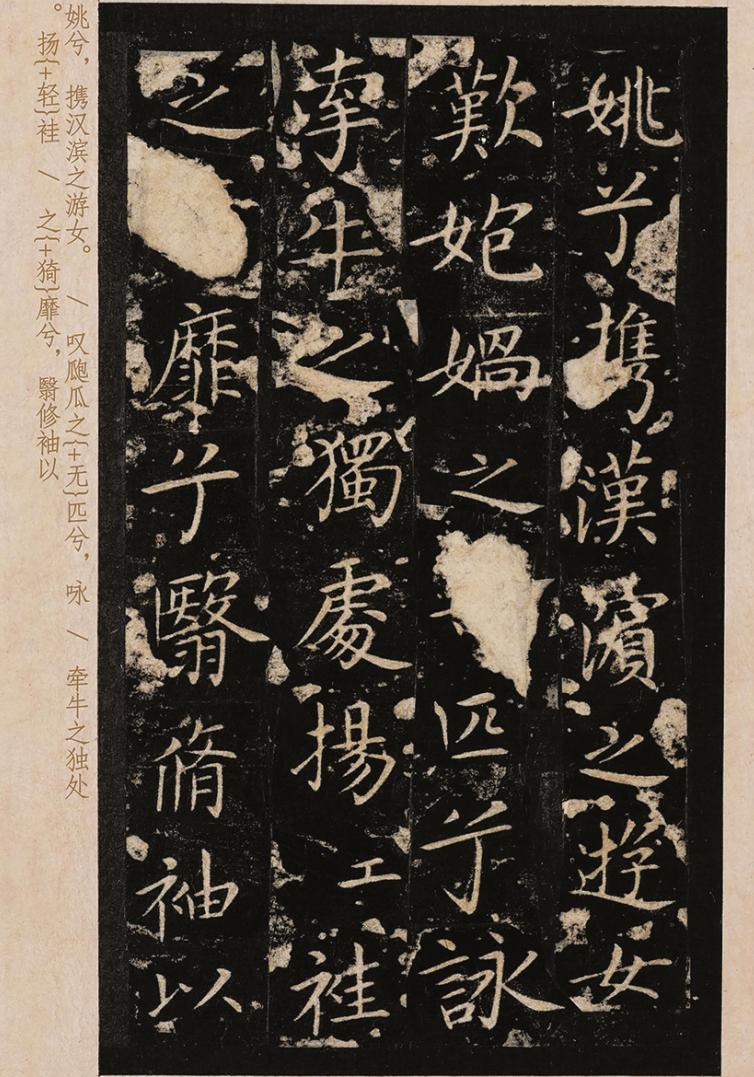 姚兮攜漢濱之遊女
歎㚿媧之匹兮詠
牽牛之獨處揚袿
之靡兮翳脩袖以
姚兮，携汉滨之游女。 \ 叹瓟瓜之{+无}匹兮，咏 \ 牵牛之独处
。扬{+轻}袿 \ 之{+猗}靡兮，翳修袖以